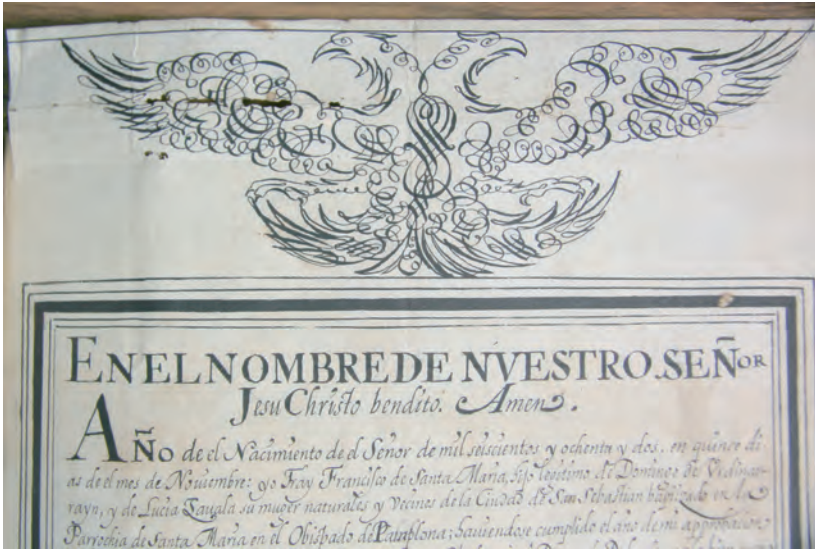 EN EL NOMBRE DE NVESTRO.SEÑOR
Jesu Christo bendito. Amen.
AÑo de el Nacimiento de el Señor de mil seiscientos y ochenta y dos, en quince di-
as de el mes de Nouiembre: yo Fray Francisco de Santa Maria, hijo legitimo de Domingo de
rayn, y de Lucia Zauala su muger naturales y vecinos de la Ciudad de San Sebastian baptizado en la
Parrochia de Santa Maria en el Obispado de Pamplona; hauiendose cumplido el año de mi approbacion